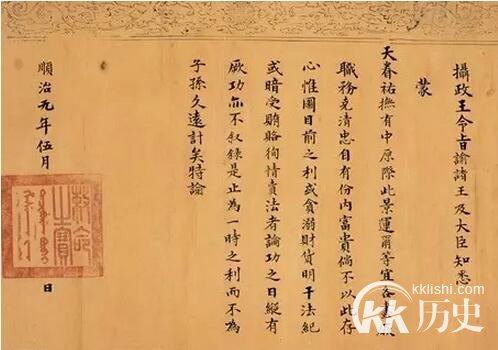 攝政王令旨諭諸王及大臣知悉
蒙
天眷祐撫有中原際此景運爾等宜各盡厥
職務克清忠自有份内富貴倘不以此存
心惟圖目前之利或貪溺財貨明干法紀
或暗受賄賂徇情賣法者論功之日縱有
厥功亦不敘錄是止為一時之利而不為
子孫久遠計矣特諭
順治元年伍月 日
敕命之寶
kklishi.com
KK 历史